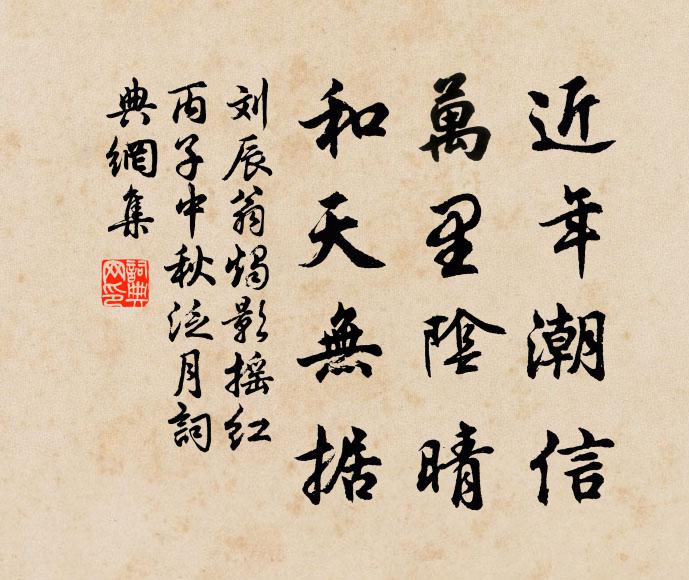 近年潮信
萬里陰晴
和天無据
刘辰翁燭影摇红
丙子中秋泛月詞
典網集
詞典網印